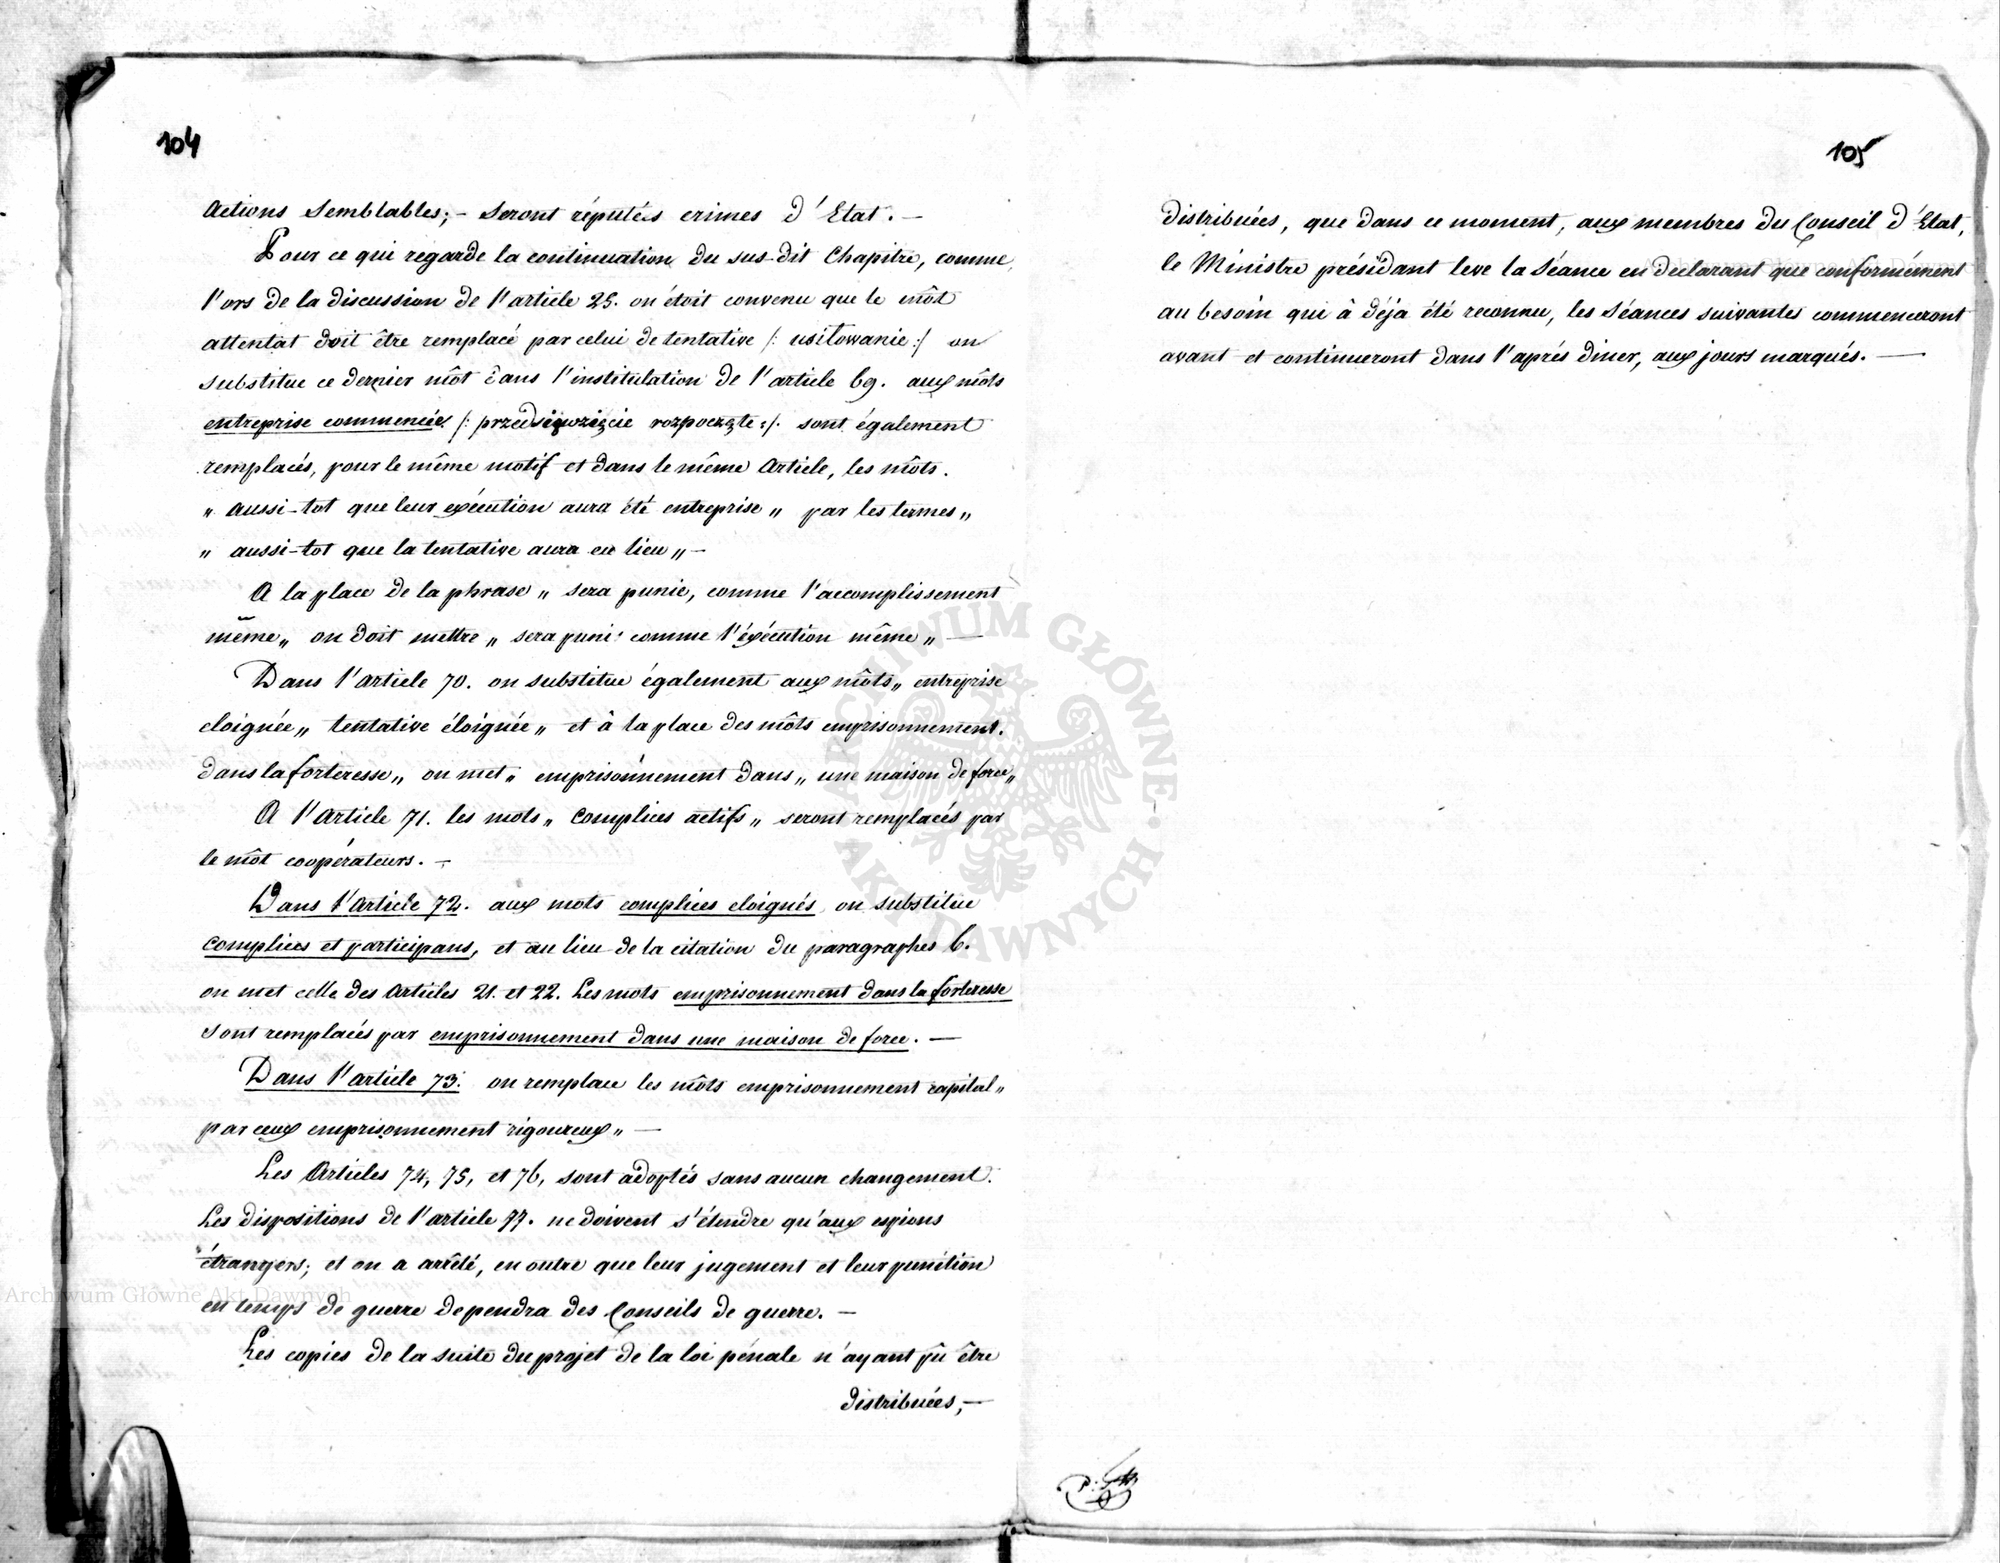 104
actions semblables; – seront réputés crimes d'Etat. –
Pour ce qui regarde la continuation du sus-dit Chapitre, comme
l'ors de la discussion de l'article 25. on étoit convenu que le môt
attentat doit être remplacé par celui de tentative /: usiłowanie :/ on
substitue ce dernier môt dans l'institulation de l'article 69. aux môts
entreprise commencée /: przedsięwzięcie rozpoczęte :/. sont également
remplacés, pour le même motif et dans le même article, les môts.
„ aussi-tot que leur exécution aura été entreprise „ par les termes „
„ aussi-tot que la tentative aura eu lieu „ –
A la place de la phrase „ sera punie, comme l'accomplissement
même „ on doit mettre „ sera puni: comme l'éxécution même „ —
Dans l'article 70. on substitue également aux môts „ entreprise
eloignée „ tentative éloignée „ et à la place des môts emprisonnement.
dans la forteresse „ on met „ emprisonnement dans „ une maison de force „
A l'article 71. les mots „ complices actifs „ seront remplacés par
le môt coopérateurs. –
Dans l'article 72. aux mots complices eloignés, on substitue
complices et participans, et au lieu de la citation du paragraphes 6.
on met celle des articles 21. et 22. Les mots emprisonnement dans la forteresse
sont remplacés par emprisonnement dans une maison de force. —
Dans l'article 73. on remplace les môts emprisonnement capital „
par ceux emprisonnement rigoureux „ —
Les Articles 74, 75, et 76, sont adoptés sans aucun changement.
Les dispositions de l'article 77. ne doivent s'étendre qu'aux espions
étrangers; et on a arrêté, en outre que leur jugement et leur punition
en temps de guerre dependra des Conseils de guerre. –
Les copies de la suite du projet de la loi pénale n'ayant pû être
distribuées, –
105
distribuées, que dans ce moment, aux membres du Conseil d'Etat,
le Ministre présidant leve la Séance en declarant que conformément
au besoin qui à déja été reconnu, les Séances suivantes commenceront
avant et continueront dans l'aprés diner, aux jours marqués. —
ARCHIWUM GŁÓWNE AKT DAWNYCH
Archiwum Główne Akt Dawnych
Archiwum Główne Akt Dawnych